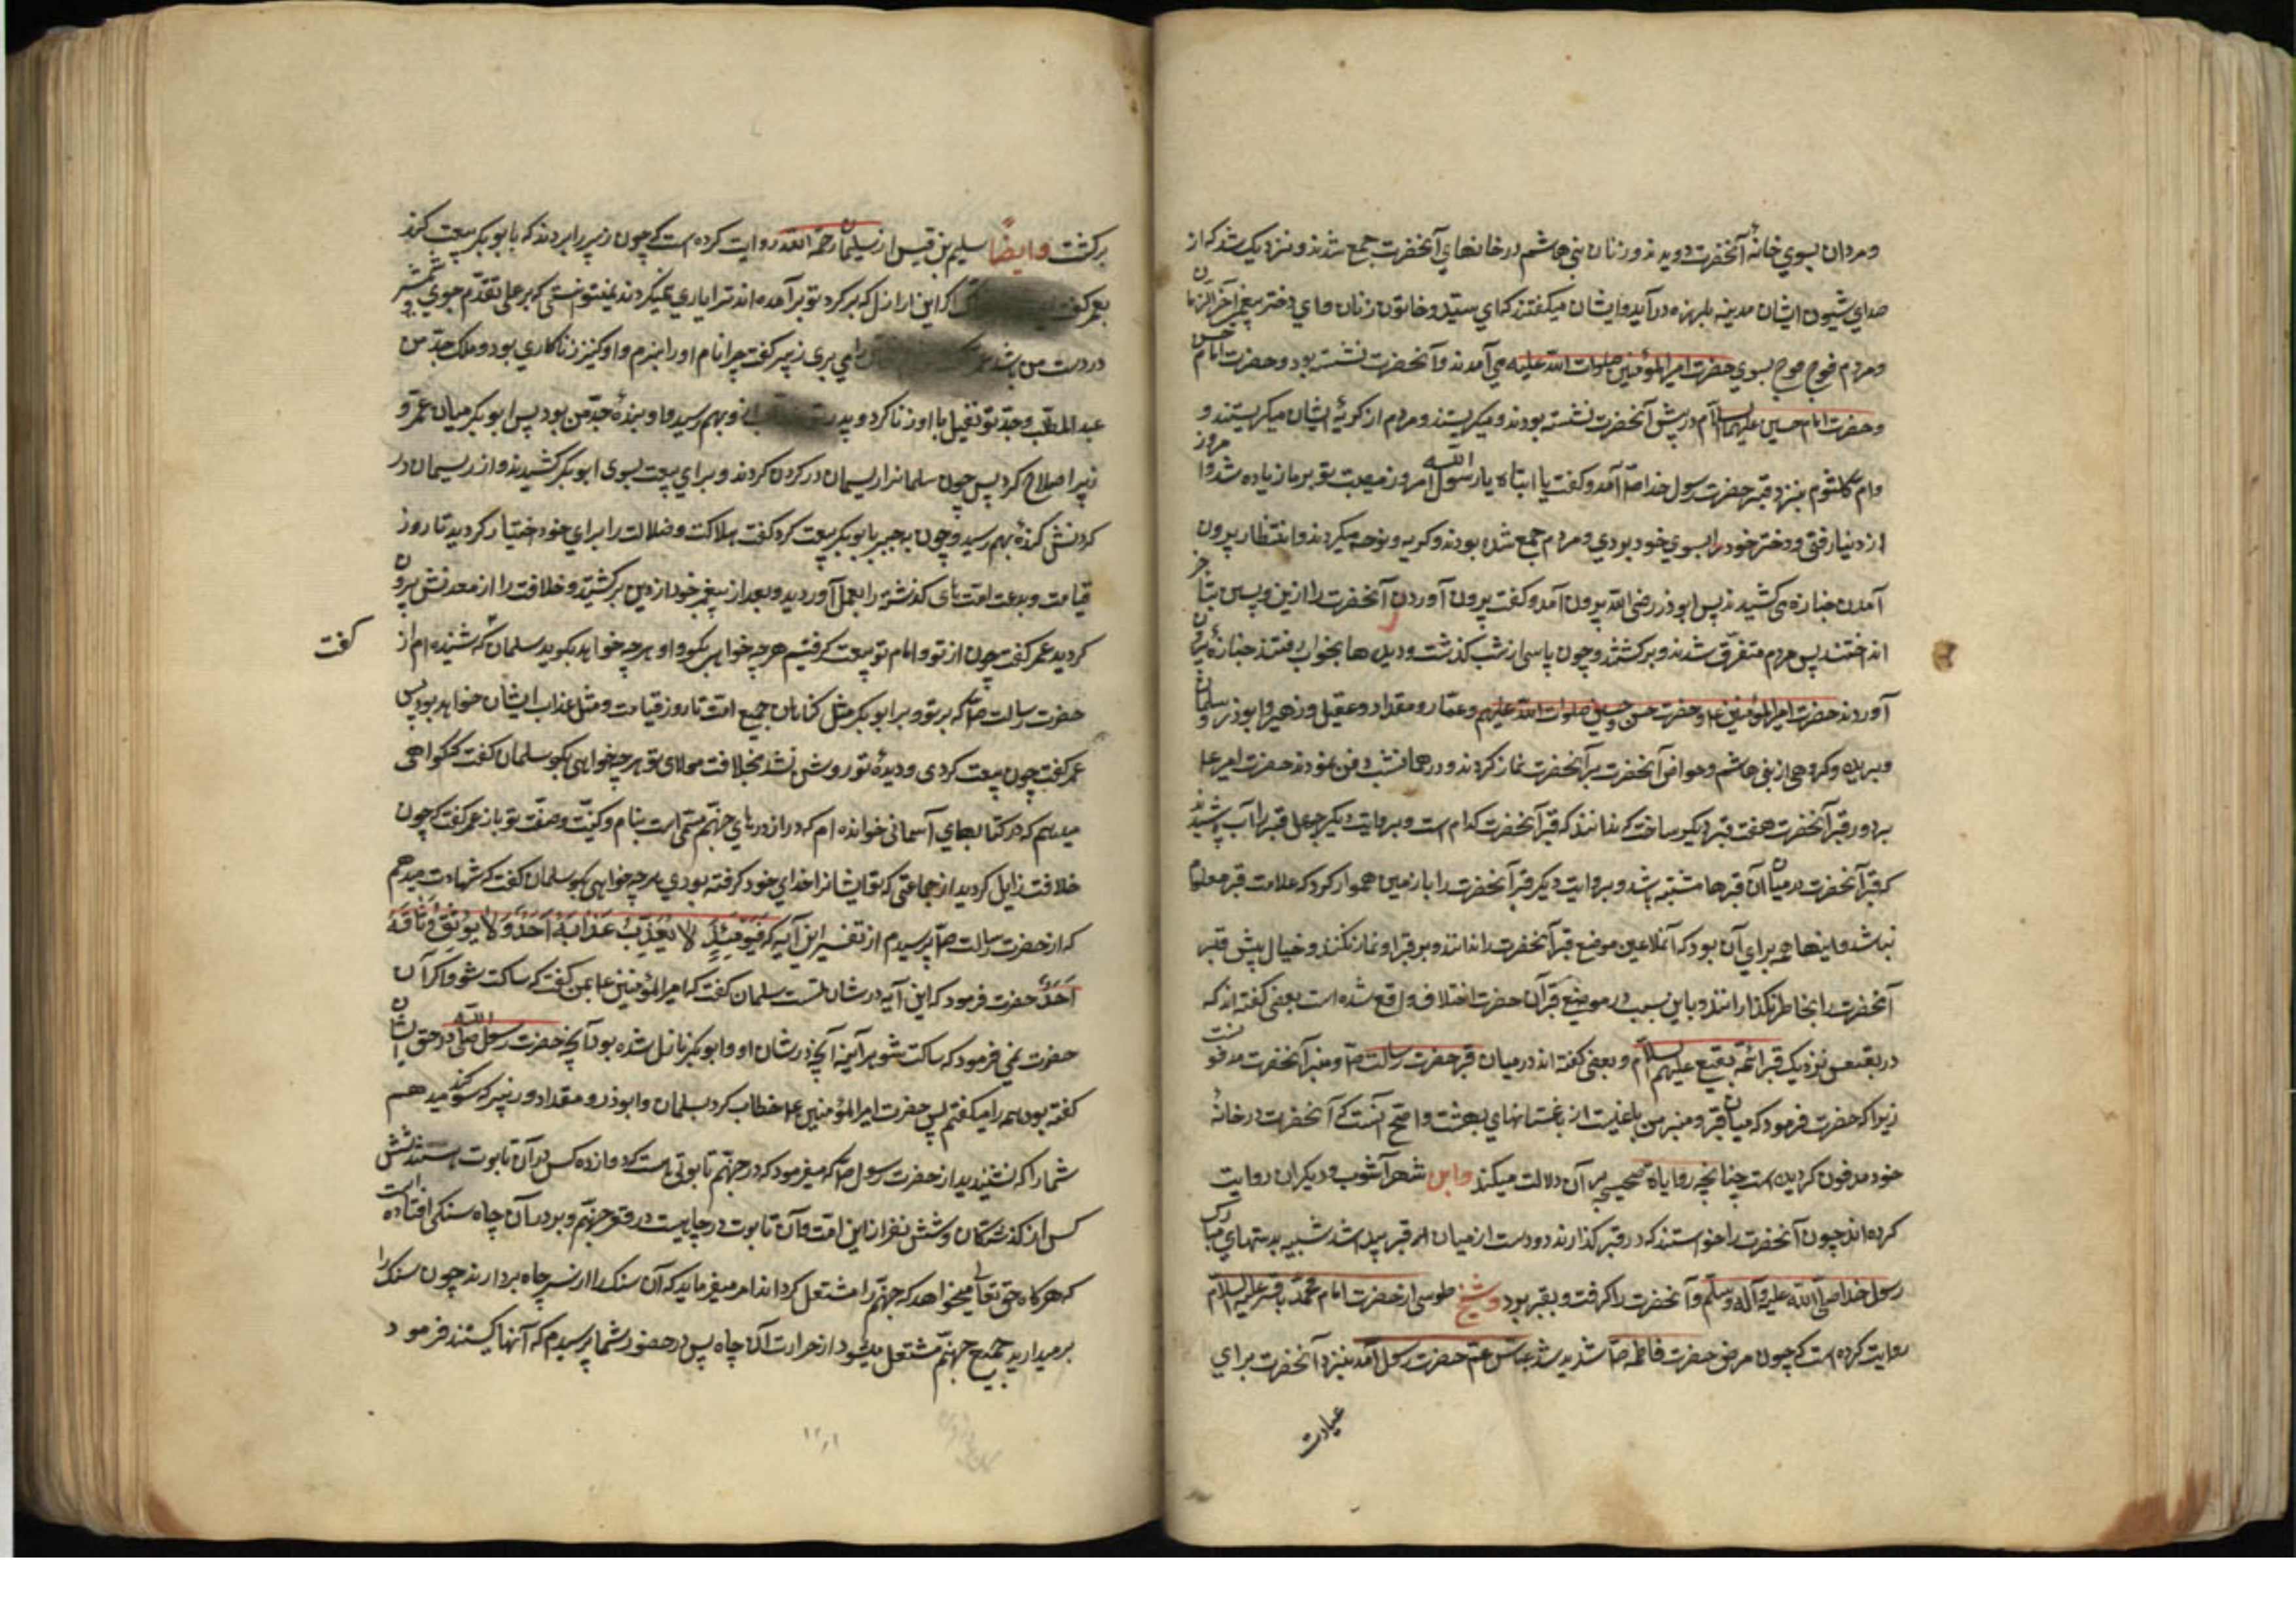 ومردان بسوي خانهٔ آنحضرت دویدند وزنان بني هاشم در خانهاي آنحضرت جمع شدند ونزدیک شد که از
صداي شیون ایشان مدینه بلرزه درآید وایشان میگفتند که اي سیده وخاتون زنان واي دختر پیغمبر آخر الزمان
ومردم فوج فوج بسوي حضرت امیر المؤمنین صلوات الله علیه مي آمدند وآنحضرت نشسته بود وحضرت امام حسن
وحضرت امام حسین علیهما السلام در پیش آنحضرت نشسته بودند ومیکریستند ومردم از کریهٔ ایشان میکریستند و
وام کلثوم بنزد قبر حضرت رسول خدا صلّ آمد وکفت یا ابتاه یا رسول الله امروز مصیبت تو بر ما زیاده شد وامروز
از دنیا رفتي ودختر خود را بسوي خود بودي ومردم جمع شده بودند وکریه ونوحه میکردند وانتظار بیرون
آمدن جنازه می کشیدند پس ابوذر رضی الله بیرون آمد وکفت بیرون آوردن آنحضرت را ازین پسین بتاخیر
انداختند پس مردم متفرق شدند وبرکشتند وچون پاسی از شب کذشت ودیده ها بخواب رفتند جنازه را بیرون
آوردند حضرت امیر المؤمنین ع وحضرت حسن وحسین صلوات الله علیهم وعمار ومقداد وعقیل وزهیر وابوذر وسلمان
وبریده وکروهی از بنی هاشم وخواص آنحضرت بر آنحضرت نماز کردند ودر همان شب دفن نمودند حضرت امیر ع
بر دور قبر آنحضرت هفت قبر دیکر ساخت که ندانند که قبر آنحضرت کدام است وبروایت دیکر چهل قبر را آب پاشیدند
که قبر آنحضرت در میان آن قبرها مشتبه باشد وبروایت دیکر قبر آنحضرت را با زمین هموار کرد که علامت قبر معلوم
نباشد واینها همه براي آن بود که آنملاعین موضع قبر آنحضرت را ندانند وبر قبر او نماز نکنند وخیال نبش قبر
آنحضرت را بخاطر نکذرانند وباین سبب در موضع قبر آن حضرت اختلاف واقع شده است بعضی کفته اند که
در بقیع نزدیک قبر ائمّه بقیع علیهم السلام وبعضی کفته اند در میان قبر حضرت رسالت صلّ ومنبر آنحضرت مدفونست
زیرا که حضرت فرمود که میان قبر ومنبر من باغیست از باغستانهاي بهشت واصح آنست که آنحضرت در خانهٔ
خود مدفون کردیده است چنانچه روایاة صحیحه بر آن دلالت میکند وابن شهرآشوب ودیکران روایت
کرده اند چون آنحضرت را خواستند که در قبر کذارند دو دست از میان قبر پیدا شد شبیه بدستهاي مبارک
رسول خدا صلّی الله علیه وآله وسلّم وآنحضرت را کرفت وبقبر بود وشیخ طوسی از حضرت امام محمّد باقر علیه السلام
روایت کرده است که چون مرض حضرت فاطمه صلّ شدید شد عباس عم حضرت رسول آمد بنزد آنحضرت براي
عیادت
برکشت وایضاً سلیم بن قیس از سلیمان رحمة الله روایت کرده است که چون زبیر را بردند که با ابوبکر بیعت کند
بعمر کفت اکر این اراذل که بر کرد تو برآمده اند ترا یاري نمیکردند نمیتوانستی که بر علی تقدّم جوي وشمشیر
در دست من باشد عمر را می بری زبیر کفت چرا نام اورا نبرم واو کنیز زناکاري بود وملک جد من
عبد المطلب وجد تو نفیل با او زنا کرد وپدرت از و بهم رسید واو بندهٔ جد من بود پس ابوبکر میان عمر و
زبیر اصلاح کرد پس چون سلمانرا ریسمان در کردن کردند وبراي بیعت بسوی ابوبکر کشیدند واز ریسمان در
کردنش کرهٔ بهم رسید وچون بجبر با ابوبکر بیعت کرد کفت هلاکت وضلالت را براي خود اختیار کردید تا روز
قیامت وبدعت امت هاي کذشته را بعمل آوردید وبعد از پیغمبر خود از دین برکشتید وخلافت را از معدنش بیرون
کردید عمر کفت چون از تو وامام تو بیعت کرفتیم هرچه خواهي بکو واو هرچه خواهد بکوید سلمان کفت که شنیده ام از
حضرت رسالت صلّ که بر تو وبر ابوبکر مثل کناهان جمیع امت تا روز قیامت ومثل عذاب ایشان خواهد بود پس
عمر کفت چون بیعت کردی ودیدهٔ تو روشن نشد بخلافت مولاي تو هرچه خواهی بکو سلمان کفت که کواهی
میدهم که در کتابهاي آسمانی خوانده ام که در از درهاي جهنّم مسمّی است بنام وکنیت وصفت تو باز عمر کفت که چون
خلافت زایل کردید از جماعتی که تو ایشانرا خداي خود کرفته بودي هرچه خواهی بکو سلمان کفت که شهادت میدهم
که از حضرت رسالت صلّ پرسیدم از تفسیر این آیه که فَیَوْمَئِذٍ لا یُعَذِّبُ عَذَابَهُ أَحَدٌ وَلا یُوثِقُ وَثَاقَهُ
أَحَدٌ حضرت فرمود که این آیه در شان تست سلمان کفت که امیر المؤمنین ع بمن کفت که ساکت شو واکر آن
حضرت نمي فرمود که ساکت شو هر آینه آنچه در شان او وابوبکر نازل شده بود وآنچه حضرت رسول الله صلّی در حق ایشان
کفته بود همه را میکفتم پس حضرت امیر المؤمنین ع خطاب کرد بسلمان وابوذر ومقداد وزبیر که سوکند میدهم
شما را که نشنیدید از حضرت رسول صلّ که میفرمود که در جهنّم تابوتی هست که دوازده کس در آن تابوت هستند شش
کس از کذشتکان وشش نفر از این امّت وآن تابوت در چاهیست در قعر جهنّم وبر در آن چاه سنکی افتاده است
که هرکاه حق تعالی میخواهد که جهنّم را مشتعل کرداند امر میفرماید که آن سنک را از سر چاه بردارند چون سنک را
بر میدارید جمیع جهنّم مشتعل میشود از حرارت آن چاه پس در حضور شما پرسیدم که آنها کیستند فرمود
کفت